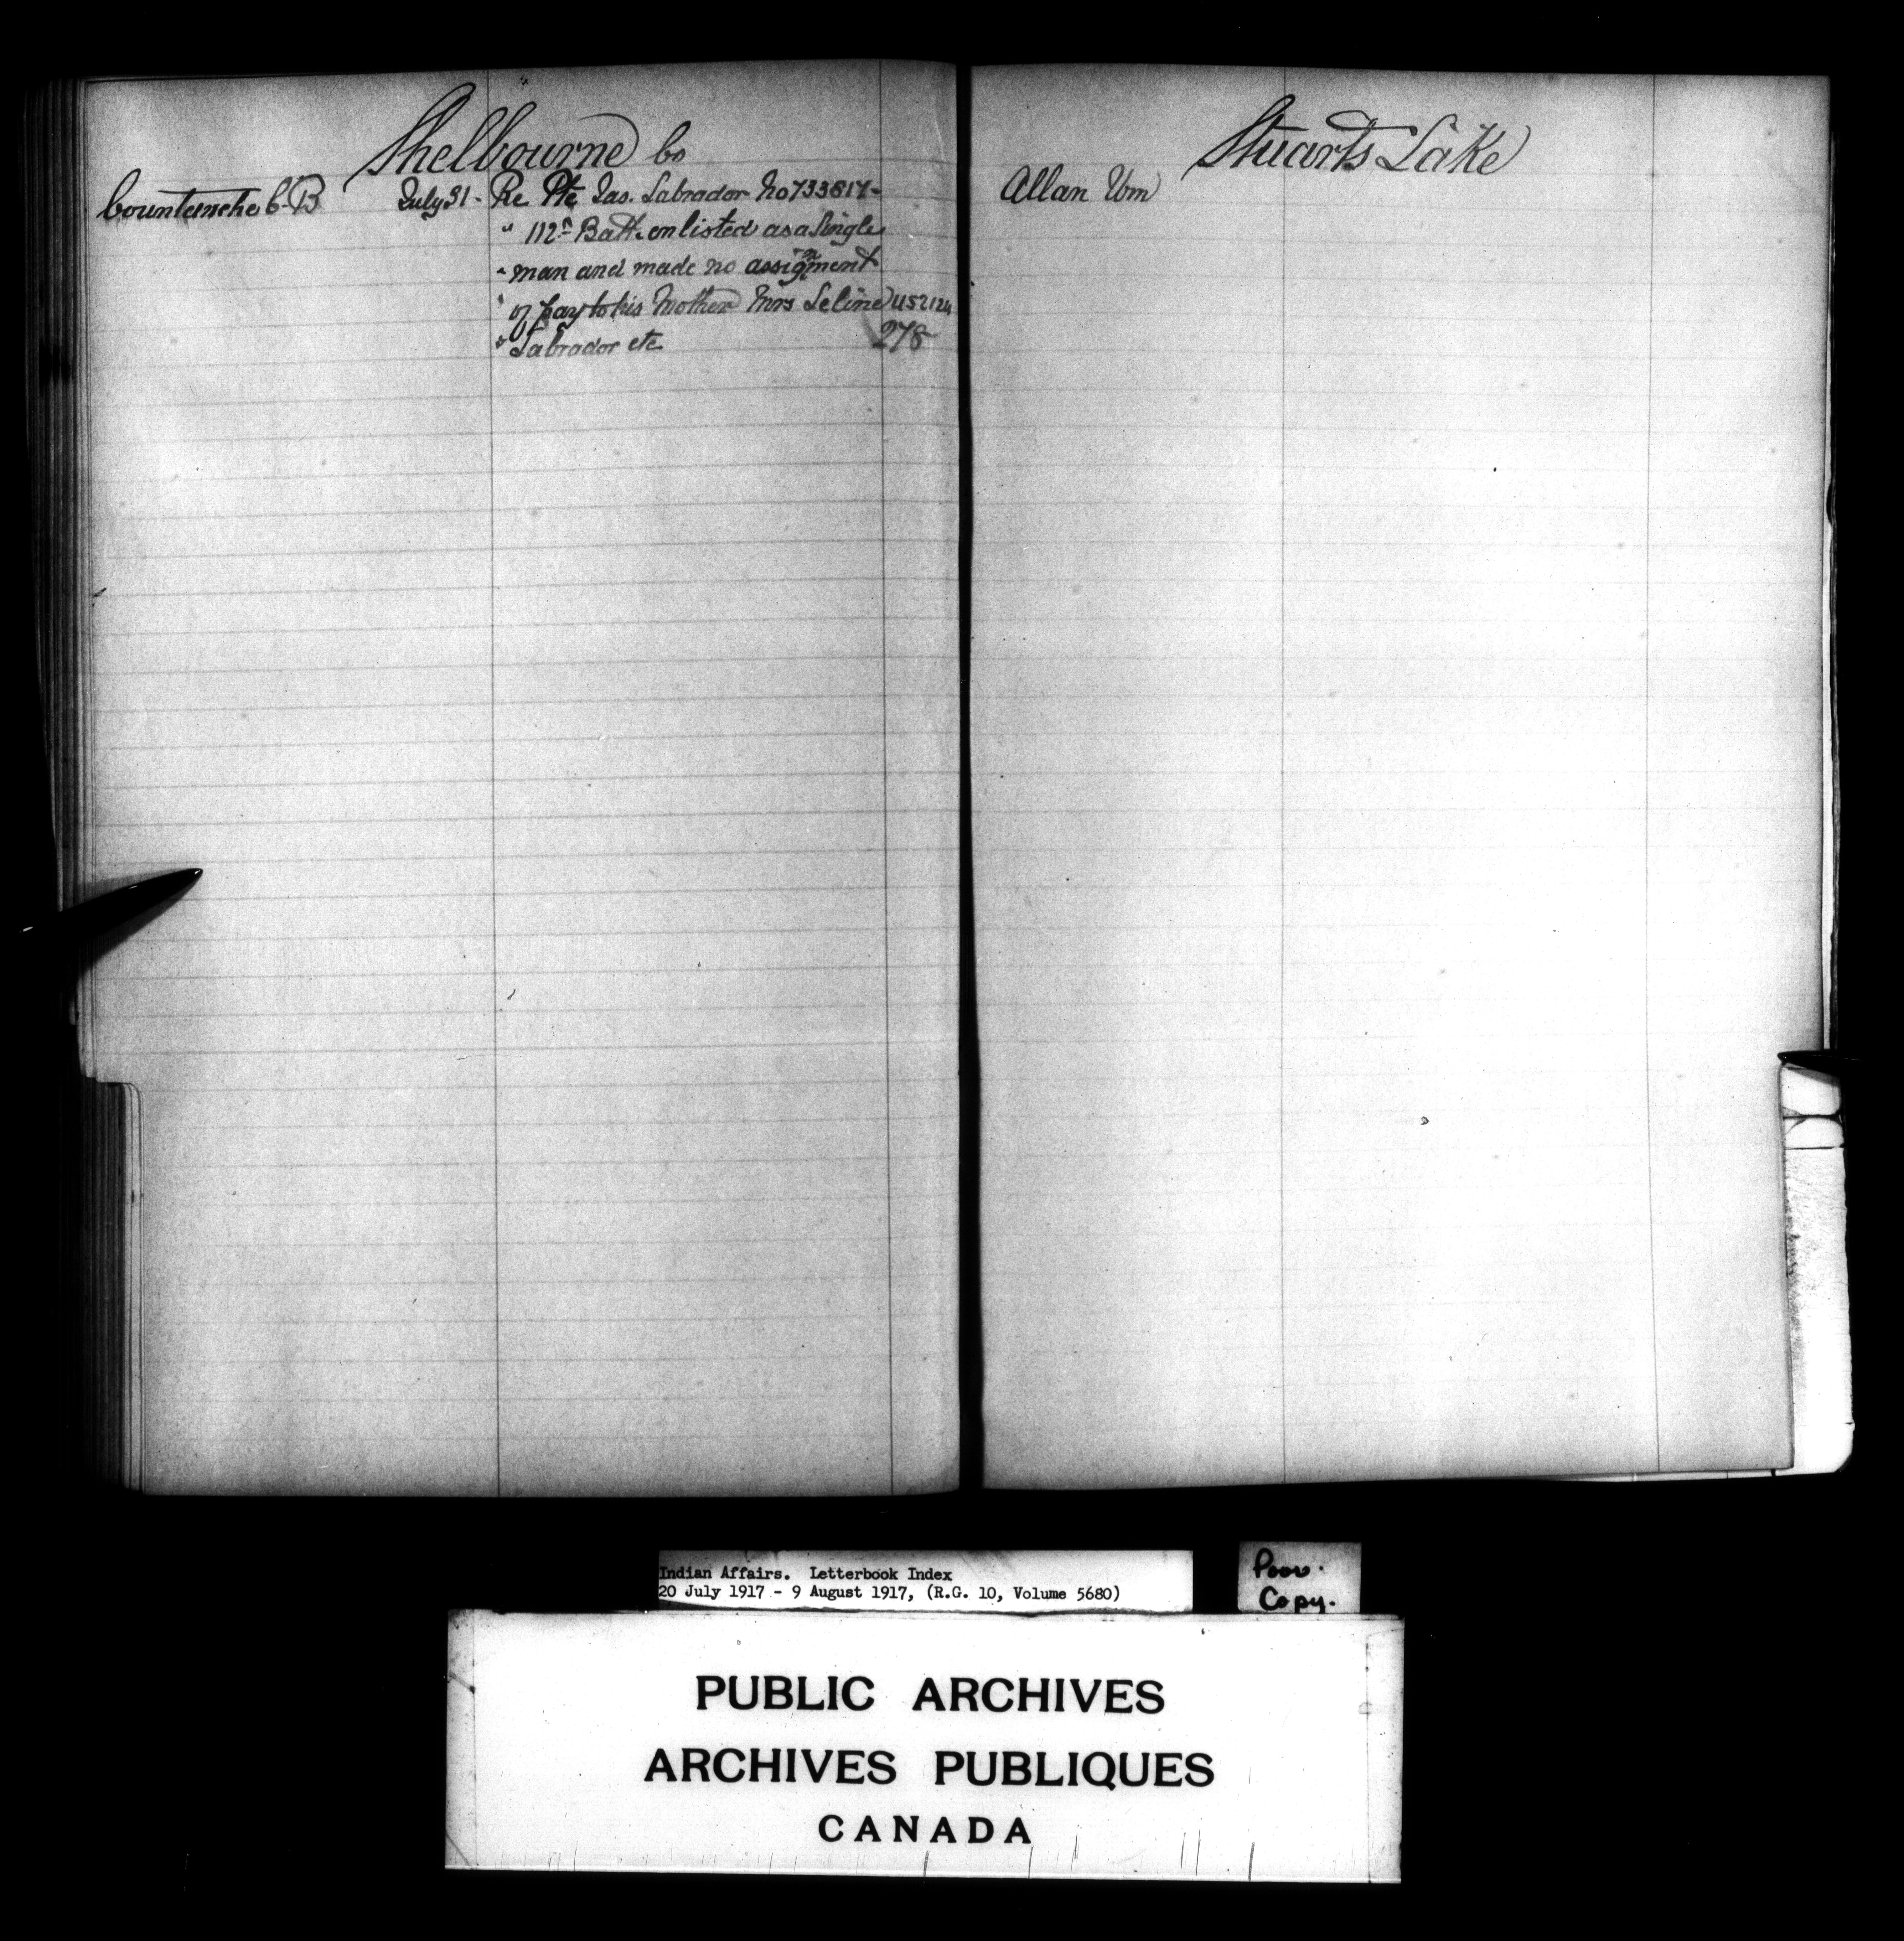 Shelbourne Co
July 31 - Re Pte Jas. Labrador No 733817 -
" 112th Batt. enlisted as a Single
" man and made no assignment
" of pay to his Mother Mrs Seline 452124
" Labrador etc 278
Stuarts Lake
Allan Wm
Indian Affairs. Letterbook Index
20 July 1917 - 9 August 1917, (R.G. 10, Volume 5680)
Poor.
Copy.
PUBLIC ARCHIVES
ARCHIVES PUBLIQUES
CANADA